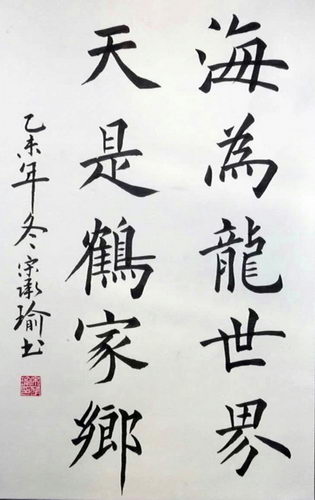 海為龍世界
天是鶴家鄉
乙未年冬宗承瑜书